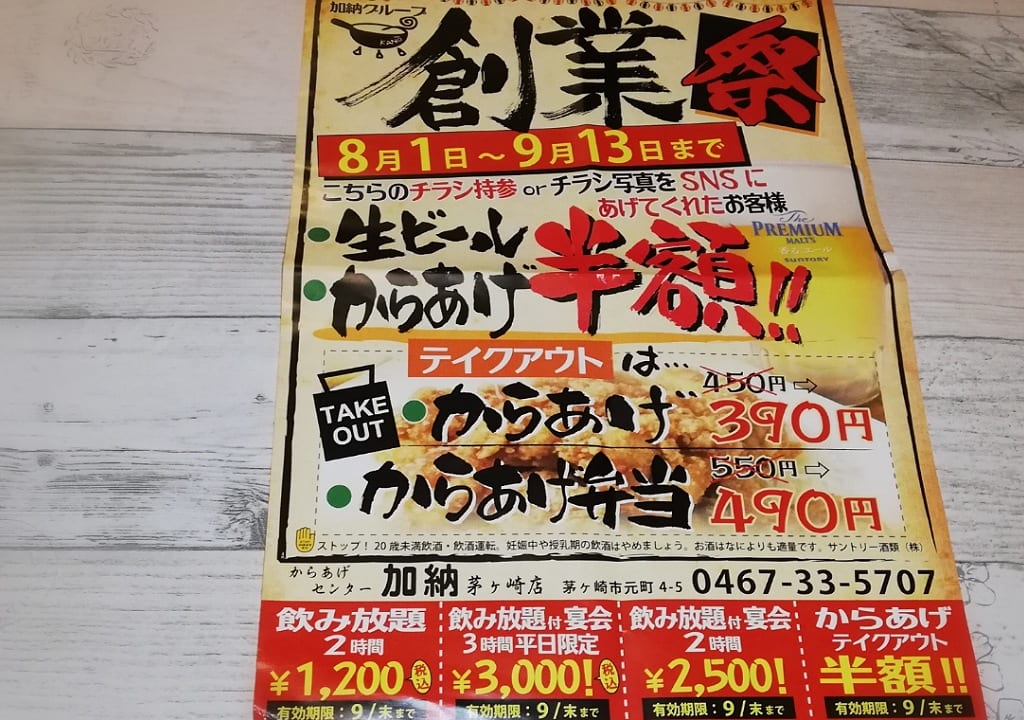 加納グループ
KANO
創業祭
8月1日～9月13日まで
こちらのチラシ持参 or チラシ写真をSNSに
あげてくれたお客様
生ビール
からあげ
半額!!
The
PREMIUM
MALT'S
SUNTORY
テイクアウトは…
TAKE
OUT
からあげ 450円⇨
390円
からあげ弁当 550円⇨
490円
ストップ！20歳未満飲酒・飲酒運転。妊娠中や授乳期の飲酒はやめましょう。お酒はなによりも適量です。サントリー酒類（株）
からあげ
センター 加納 茅ヶ崎店 茅ヶ崎市元町4-5 0467-33-5707
飲み放題
2時間
¥1,200 税込
有効期限：9/末まで
飲み放題付宴会
3時間平日限定
¥3,000! 税込
有効期限：9/末まで
飲み放題付宴会
2時間
¥2,500!
有効期限：9/末まで
からあげ
テイクアウト
半額!!
有効期限：9/末まで